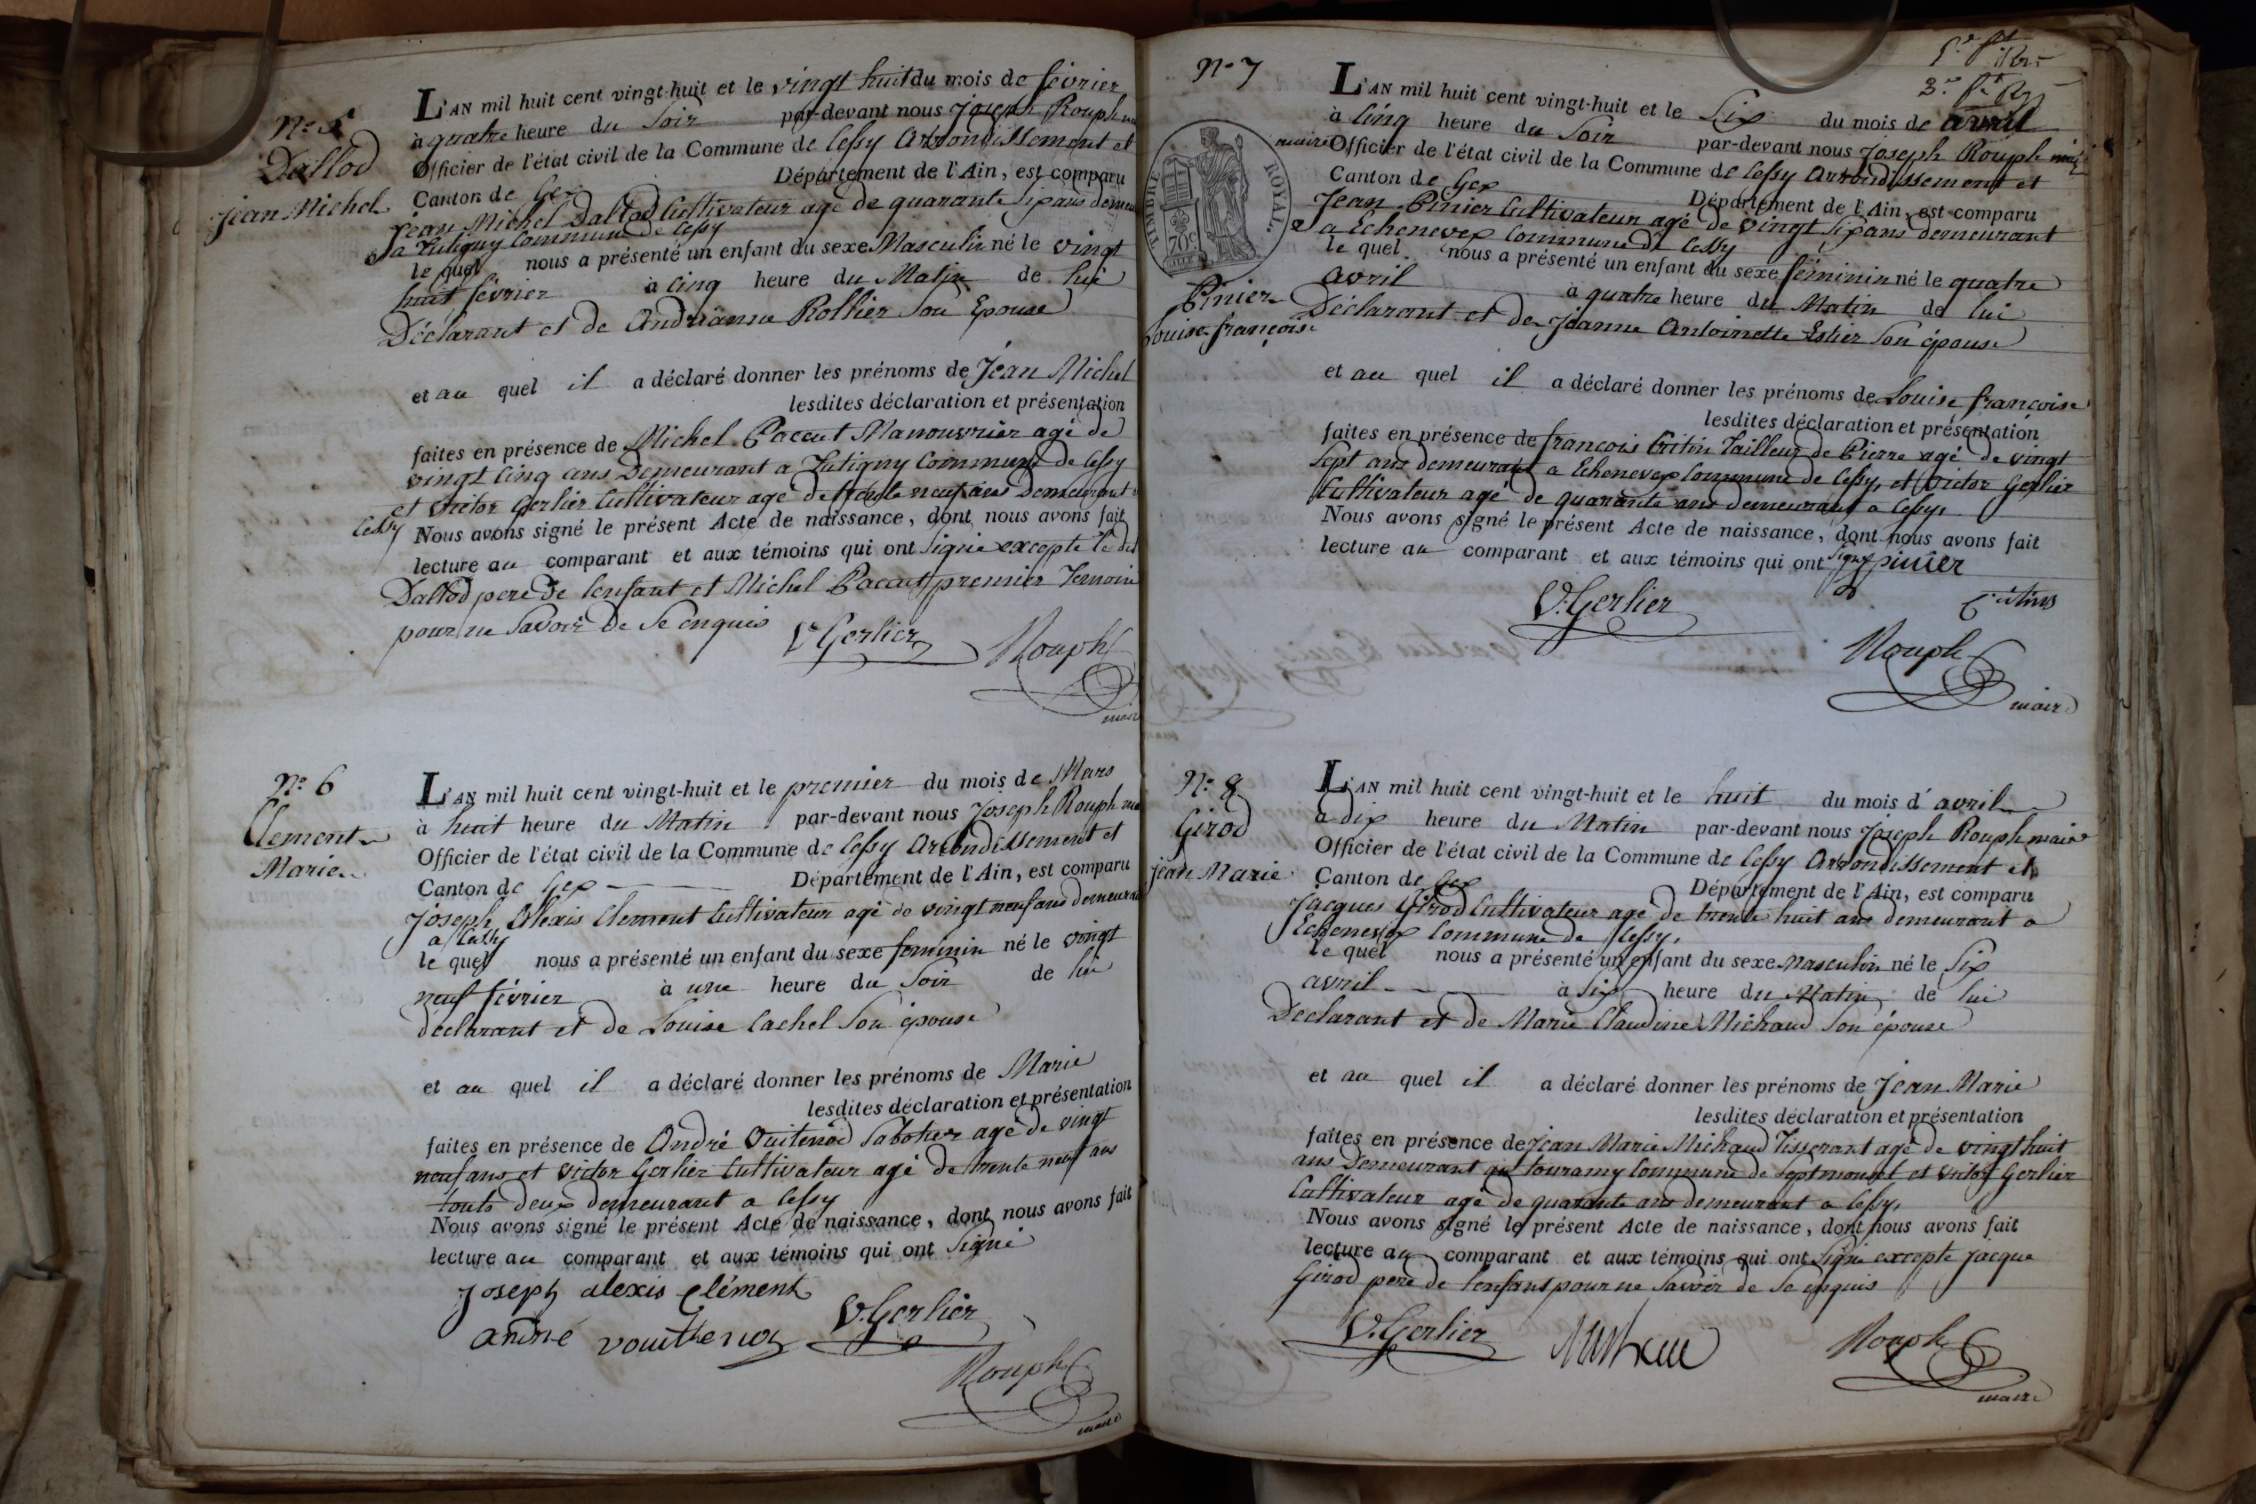 N.° 5
Dallod
Jean Michel
L'AN mil huit cent vingt-huit et le vingt huit du mois de février
à quatre heure du Soir par-devant nous Joseph Rouph
Officier de l'état civil de la Commune de Cessy Arrondissement et
Canton de Gex Département de l'Ain, est comparu
Jean Michel Dallod Cultivateur agé de quarante Six ans demeu
a Tutigny Commune de Cessy
le quel nous a présenté un enfant du sexe Masculin né le vingt
huit février à Cinq heure du Matin de lui
Déclarant et de Andrianne Rollier Son Epouse
et au quel il a déclaré donner les prénoms de Jean Michel
lesdites déclaration et présentation
faites en présence de Michel Paccut Manouvrier agé de
vingt Cinq ans Demeurant a Tutigny Commune de Cessy
et victor Gerlier Cultivateur agé de trente neuf ans Demeurant a
Cessy Nous avons signé le présent Acte de naissance, dont nous avons fait
lecture au comparant et aux témoins qui ont Signé excepté le dit
Dallod pere de lenfant et Michel Paccut premier Temoin
pour ne Savoir De Se enquis
V. Gerlier Rouph
maire
N.° 6
Clement
Marie
L'AN mil huit cent vingt-huit et le premier du mois de Mars
à huit heure du Matin par-devant nous Joseph Rouph
Officier de l'état civil de la Commune de Cessy Arrondissement et
Canton de Gex Département de l'Ain, est comparu
Joseph Alexis Clement Cultivateur agé de vingt neuf ans demeurant
a Cessy
le quel nous a présenté un enfant du sexe feminin né le vingt
neuf février à une heure du Soir de lui
déclarant et de Louise Cachel Son épouse
et au quel il a déclaré donner les prénoms de Marie
lesdites déclaration et présentation
faites en présence de André Vuitenod Sabotier agé de vingt
neuf ans et victor Gerlier Cultivateur agé de trente neuf ans
touts deux demeurant a Cessy
Nous avons signé le présent Acte de naissance, dont nous avons fait
lecture au comparant et aux témoins qui ont Signé
Joseph alexis clément
V. Gerlier
andré
Rouph
maire
N.° 7
TIMBRE ROYAL
70 c
Pinier
Louise françoise
L'AN mil huit cent vingt-huit et le Six du mois de avril
à Cinq heure du Soir par-devant nous Joseph Rouph
maire Officier de l'état civil de la Commune de Cessy Arrondissement et
Canton de Gex Département de l'Ain, est comparu
Jean Pinier Cultivateur agé de vingt Six ans demeurant
a Echenevex Commune de Cessy
le quel nous a présenté un enfant du sexe féminin né le quatre
avril à quatre heure du Matin de lui
Déclarant et de Jeanne Antoinette Estier Son épouse
et au quel il a déclaré donner les prénoms de Louise françoise
lesdites déclaration et présentation
faites en présence de françois Critin Tailleur de Pierre agé de vingt
Sept ans demeurant a Echenevex Commune de Cessy, et victor Gerlier
Cultivateur agé de quarante ans demeurant a Cessy,
Nous avons signé le présent Acte de naissance, dont nous avons fait
lecture au comparant et aux témoins qui ont Signé pinier
V. Gerlier
Rouph
maire
N.° 8
Girod
Jean Marie
L'AN mil huit cent vingt-huit et le huit du mois d'avril
à dix heure du Matin par-devant nous Joseph Rouph maire
Officier de l'état civil de la Commune de Cessy Arrondissement et
Canton de Gex Département de l'Ain, est comparu
Jacques Girod Cultivateur agé de trente huit ans demeurant a
Echenevex Commune de Cessy,
le quel nous a présenté un enfant du sexe Masculin né le Six
avril à Six heure du Matin de lui
Déclarant et de Marie Claudine Michaud Son épouse
et au quel il a déclaré donner les prénoms de Jean Marie
lesdites déclaration et présentation
faites en présence de Jean Marie Michaud Tisserant agé de vingt huit
ans Demeurant au Commune de Septmoncel et victor Gerlier
Cultivateur agé de quarante ans demeurant a Cessy,
Nous avons signé le présent Acte de naissance, dont nous avons fait
lecture au comparant et aux témoins qui ont Signé excepte Jacque
Girod pere de lenfant pour ne Savoir de Se enquis
V. Gerlier Rouph
maire